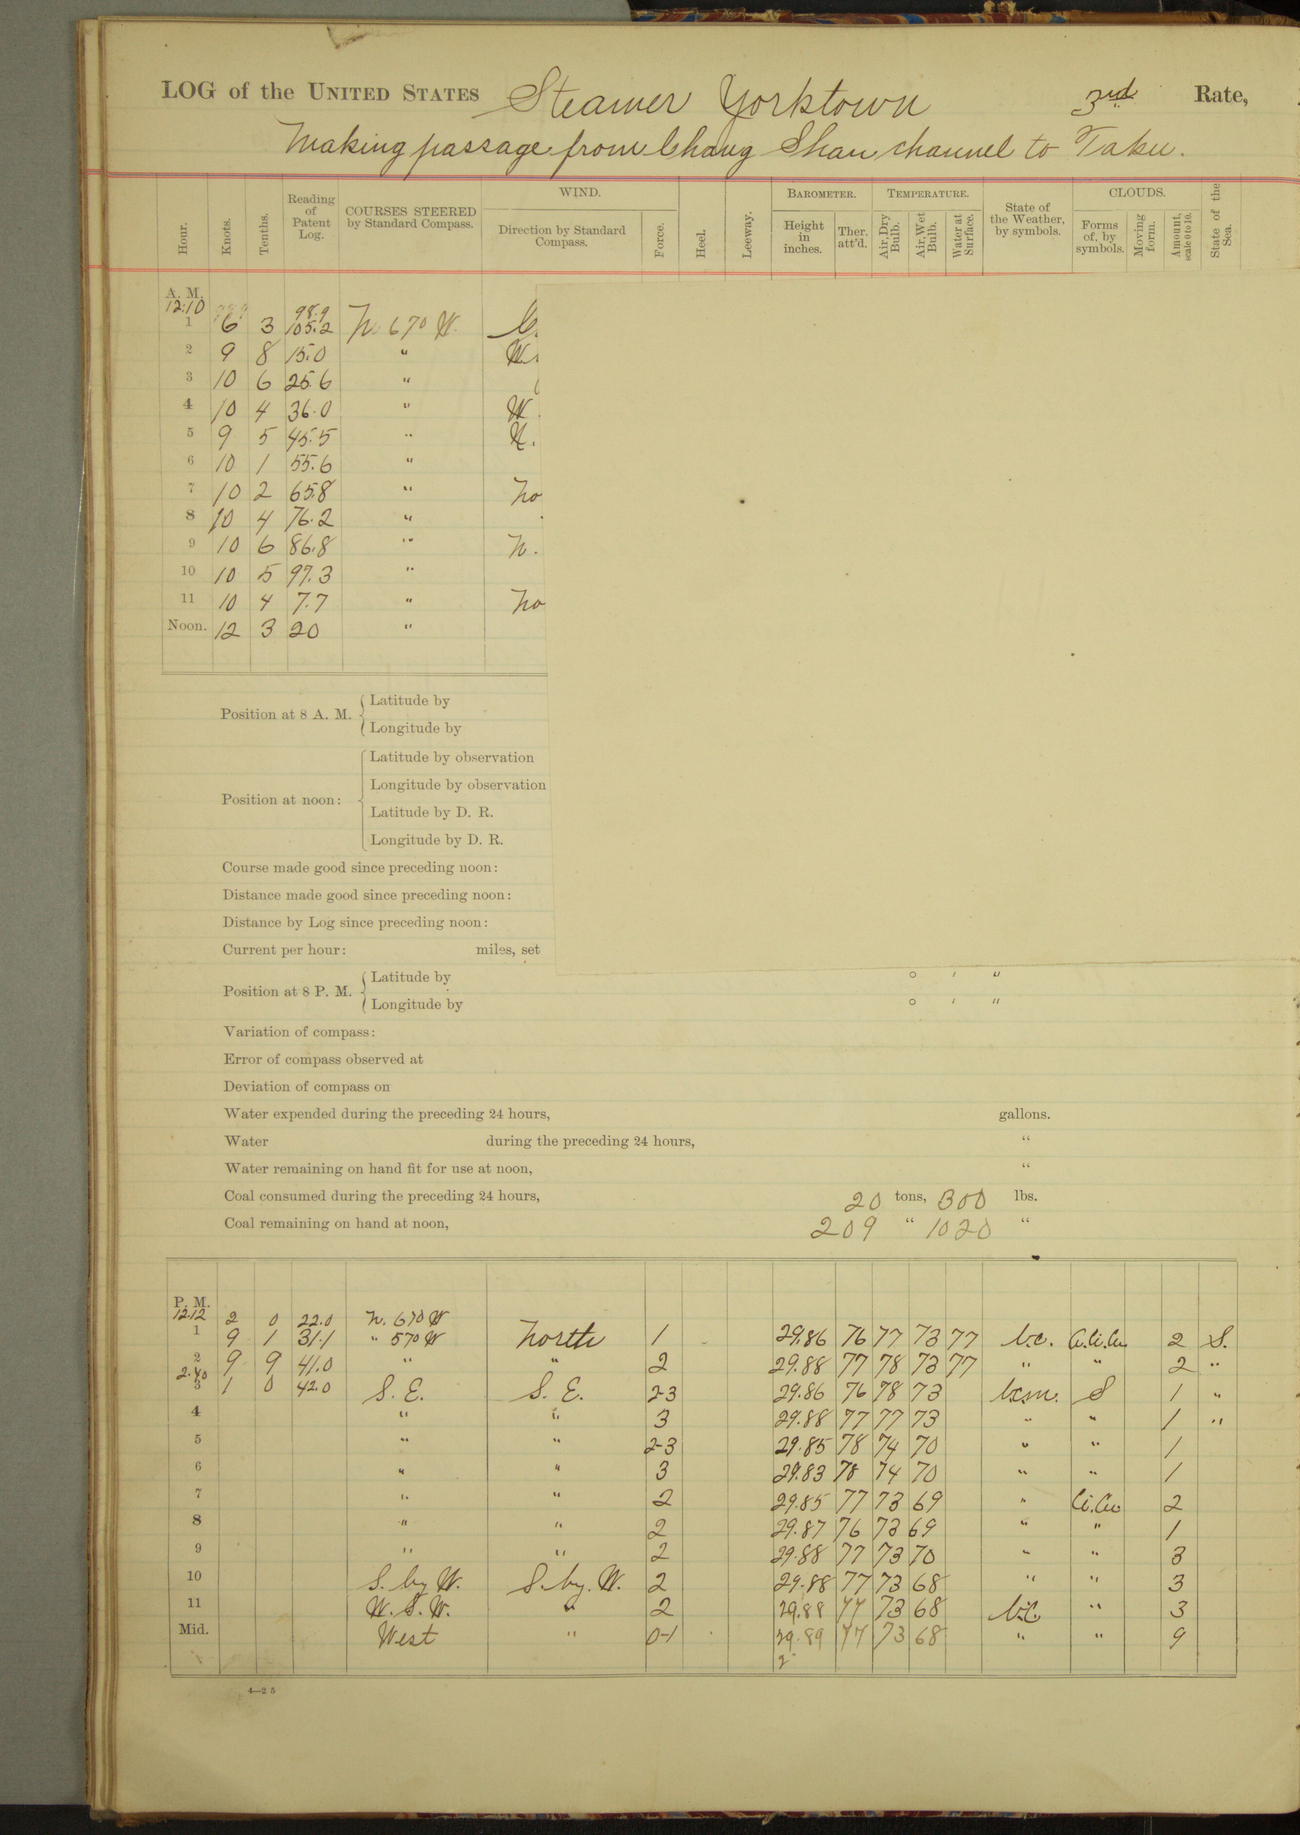 LOG of the UNITED STATES Steamer Yorktown 3rd Rate,
Making passage from Chang Shan channel to Taku.
Hour. Knots. Tenths. Reading of Patent Log. COURSES STEERED by Standard Compass. WIND. Direction by Standard Compass. Force. Heel. Leeway. BAROMETER. Height in inches. Ther. att'd. TEMPERATURE. Air, Dry Bulb. Air, Wet Bulb. Water at Surface. State of the Weather, by symbols. CLOUDS. Forms of, by symbols. Moving form. Amount, scale 0 to 10. State of the Sea.
A. M.
12:10 98.9
1 6 3 105.2 N. 67° W.
2 9 8 15.0 " W.
3 10 6 25.6 "
4 10 4 36.0 " W.
5 9 5 45.5 " N.
6 10 1 55.6 "
7 10 2 65.8 " No
8 10 4 76.2 "
9 10 6 86.8 " N.
10 10 5 97.3 "
11 10 4 7.7 " No
Noon. 12 3 20 "
Position at 8 A. M. Latitude by
Longitude by
Position at noon: Latitude by observation
Longitude by observation
Latitude by D. R.
Longitude by D. R.
Course made good since preceding noon:
Distance made good since preceding noon:
Distance by Log since preceding noon:
Current per hour: miles, set
Position at 8 P. M. Latitude by ° ' "
Longitude by ° ' "
Variation of compass:
Error of compass observed at
Deviation of compass on
Water expended during the preceding 24 hours, gallons.
Water during the preceding 24 hours, "
Water remaining on hand fit for use at noon, "
Coal consumed during the preceding 24 hours, 20 tons, 300 lbs.
Coal remaining on hand at noon, 209 " 1020 "
P. M.
12.12 2 0 22.0 N. 67° W
1 9 1 31.1 " 57° W North 1 29.86 76 77 73 77 b.c. 2 S.
2 9 9 41.0 " " 2 29.88 77 78 73 77 " " 2 "
2.40
3 1 0 42.0 S. E. S. E. 2-3 29.86 76 78 73 S 1 "
4 " " 3 29.88 77 77 73 " " 1 "
5 " " 2-3 29.85 78 74 70 " " 1
6 " " 3 29.83 78 74 70 " " 1
7 " " 2 29.85 77 73 69 " Ci.Cu 2
8 " " 2 29.87 76 73 69 " " 1
9 " " 2 29.88 77 73 70 " " 3
10 S. by W. S. by. W. 2 29.88 77 73 68 " " 3
11 W. S. W. " 2 29.88 77 73 68 b.c. " 3
Mid. West " 0-1 29.89 77 73 68 " " 9
4—25